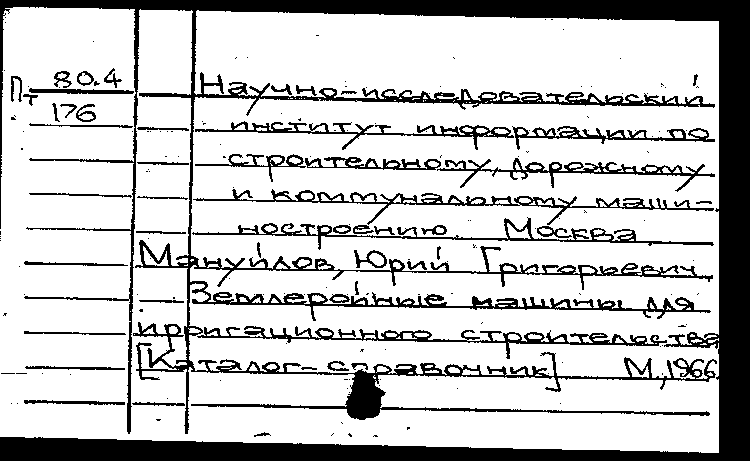 Пт 80.4
176
Научно-исследовательский
институт информации по
строительному, дорожному
и коммунальному маши-
ностроению. Москва.
Мануйлов, Юрий Григорьевич.
Землеройные машины для
ирригационного строительства
[Каталог-справочник] М, 1966.